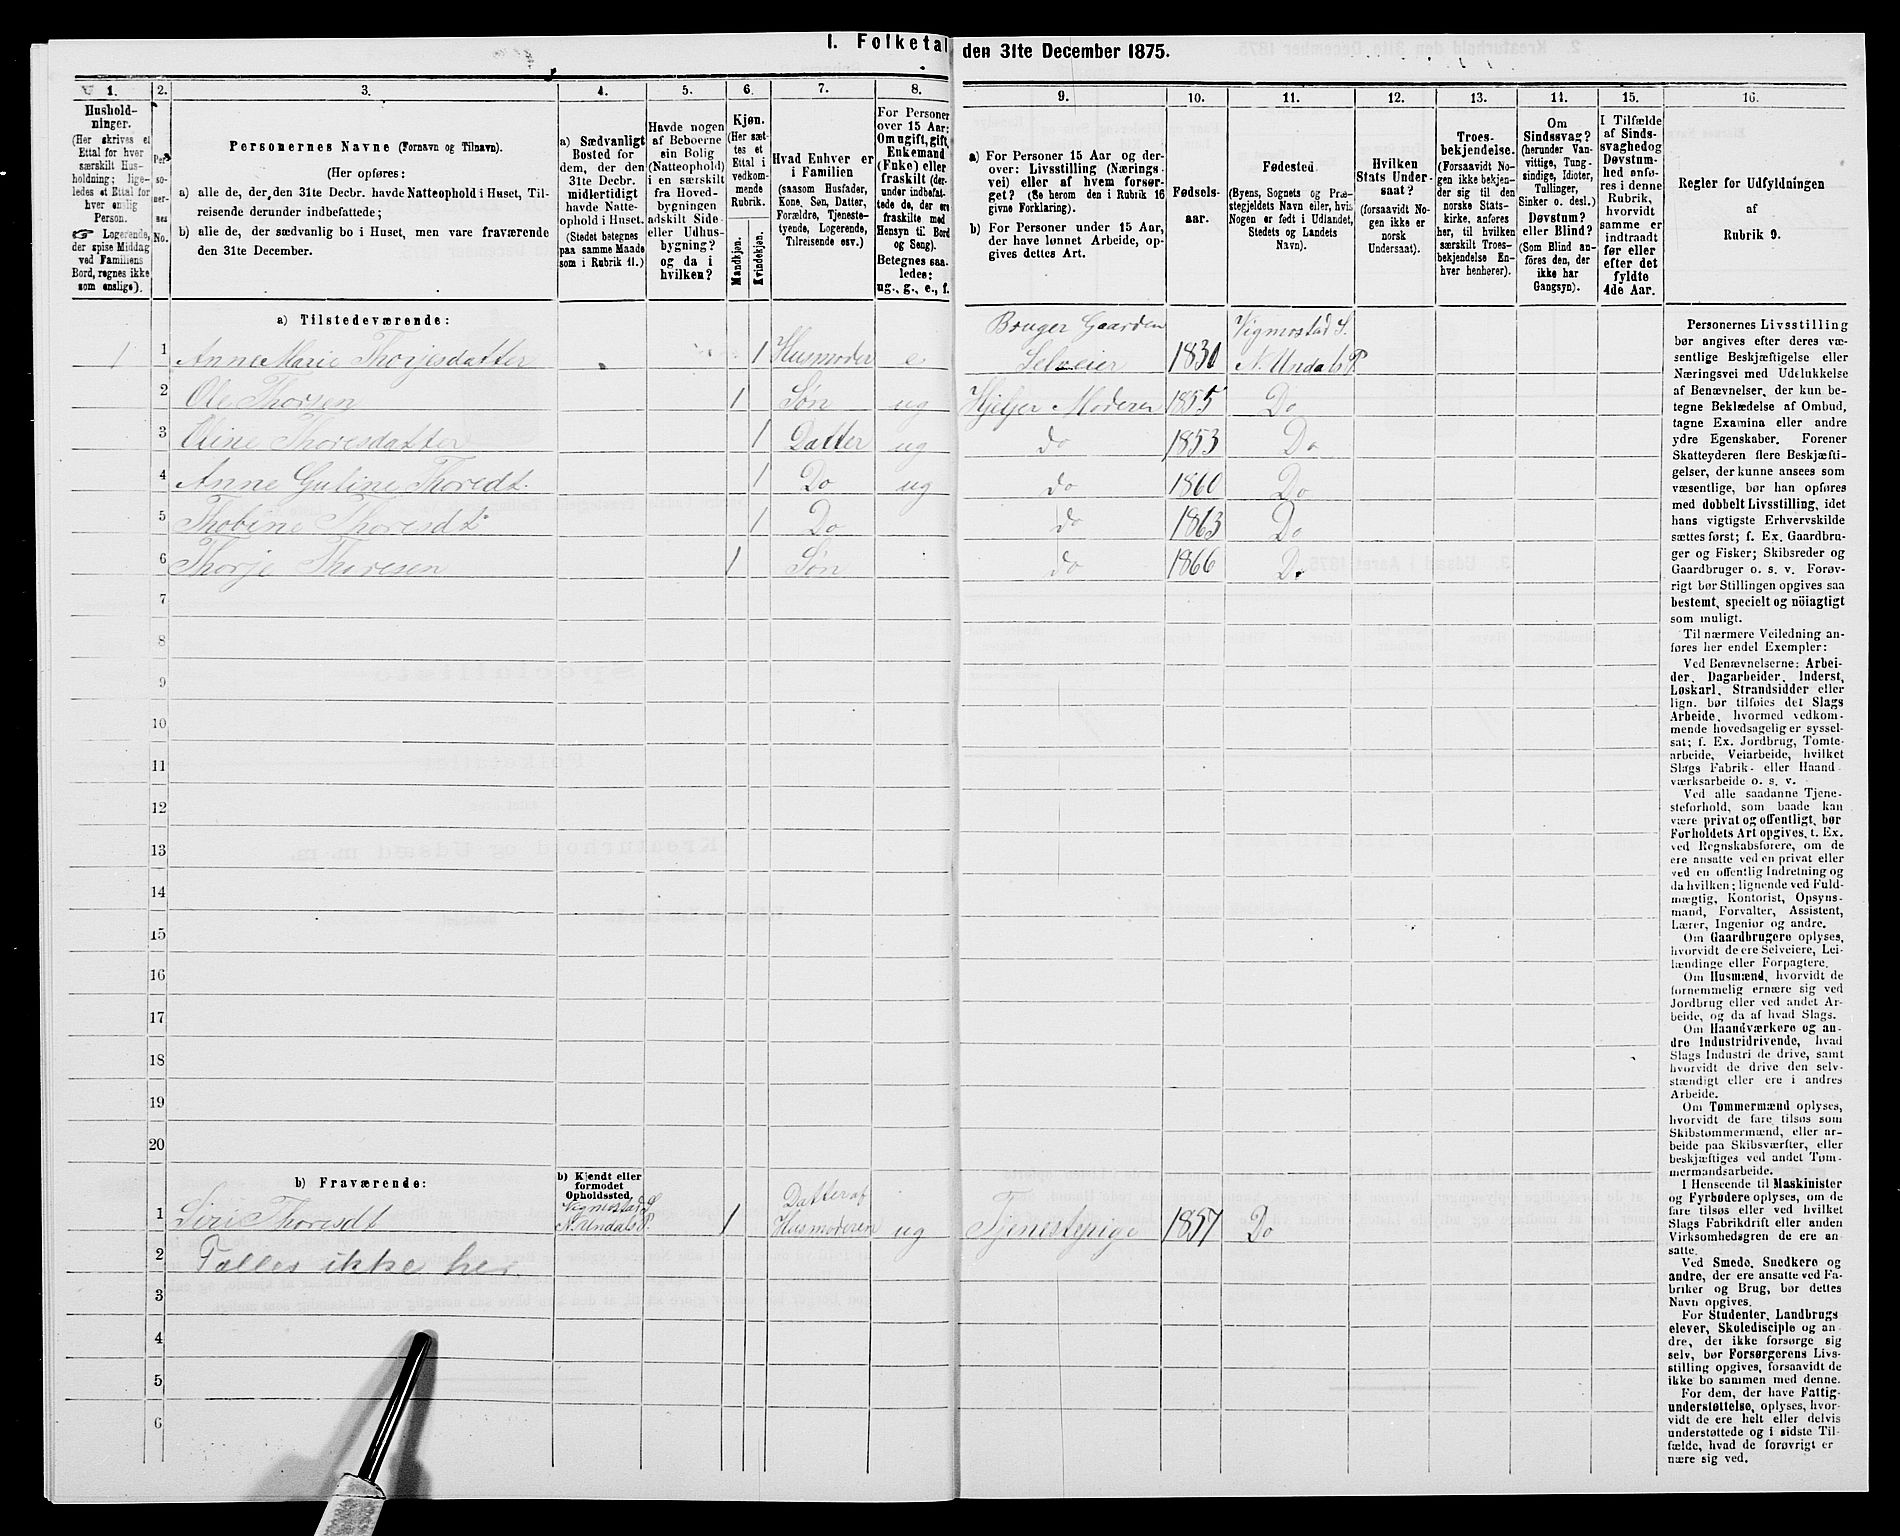 I. Folketal den 31te December 1875.
1.
Hushold-
ninger.
(Her skrives et
Ettal for hver
særskilt Hus-
holdning; lige-
ledes et Ettal for
hver enslig
Person.
☞ Logerende,
der spise Middag
ved Familiens
Bord, regnes ikke
som enslige).
2.
Per-
so-
ner-
nes
No.
3.
Personernes Navne (Fornavn og Tilnavn).
(Her opføres:
a) alle de, der den 31te Decbr. havde Natteophold i Huset, Til-
reisende derunder indbefattede;
b) alle de, der sædvanlig bo i Huset, men vare fraværende
den 31te December.
4.
a) Sædvanligt
Bosted for
dem, der den
31te Decbr.
midlertidigt
havde Natte-
ophold i Huset.
(Stedet betegnes
paa samme Maade
som i Rubrik 11.)
5.
Havde nogen
af Beboerne
sin Bolig
(Natteophold)
i en særskilt
fra Hoved-
bygningen
adskilt Side-
eller Udhus-
bygning?
og da i
hvilken?
6.
Kjøn.
(Her sæt-
tes et
Ettal i
vedkom-
mende
Rubrik.
Mandkjøn.
Kvindekjøn.
7.
Hvad Enhver er
i Familien
(saasom Husfader,
Kone, Søn, Datter,
Forældre, Tjeneste-
tyende, Logerende,
Tilreisende osv.)
8.
For Personer
over 15 Aar:
Om ugift, gift,
Enkemand
(Enke) eller
fraskilt (der-
under indbefat-
tede de, der ere
fraskilte med
Hensyn til Bord
og Seng).
Betegnes saa-
ledes:
ug., g., e., f.
9.
a) For Personer 15 Aar og der-
over: Livsstilling (Nærings-
vei) eller af hvem forsør-
get? (Se herom den i Rubrik 16
givne Forklaring).
b) For Personer under 15 Aar,
der have lønnet Arbeide, op-
gives dettes Art.
10.
Fødsels-
aar.
11.
Fødested.
(Byens, Sognets og Præ-
stegjeldets Navn eller, hvis
Nogen er født i Udlandet,
Stedets og Landets
Navn).
12.
Hvilken
Stats Under-
saat?
(forsaavidt No-
gen ikke er
norsk
Undersaat).
13.
Troes-
bekjendelse.
(Forsaavidt No-
gen ikke bekjen-
der sig til den
norske Stats-
kirke, anføres
her, til hvilken
særskilt Troes-
bekjendelse En-
hver henhører).
14.
Om
Sindssvag?
(herunder Van-
vittige, Tung-
sindige, Idioter,
Tullinger,
Sinker o. desl.)
Døvstum?
eller Blind?
(Som Blind an-
føres den, der
ikke har
Gangsyn).
15.
I Tilfælde
af Sinds-
svaghed og
Døvstum-
hed anfø-
res i denne
Rubrik,
hvorvidt
samme er
indtraadt
før eller
efter det
fyldte
4de Aar.
16.
Regler for Udfyldningen
af
Rubrik 9.
a) Tilstedeværende:
1 1 Anne Marie Thorjesdatter 1 Husmoder e Bruger Gaarden Selveier 1830 Vigmostad S. N. Undals P.
2 Ole Thorsen 1 Søn ug Hjelper Moderen 1855 Do
3 Oline Thoresdatter 1 Datter ug do 1853 Do
4 Anne Gutine Thoredt. 1 Do ug do 1860 Do
5 Thobine Thoresdt. 1 Do do 1863 Do
6 Thorje Thoresen 1 Søn do 1866 Do
7
8
9
10
11
12
13
14
15
16
17
18
19
20
b) Fraværende:
b) Kjendt eller
formodet
Opholdssted.
1 Siri Thoresdt Vigmostad S. N. Undals P. 1 Datter af Husmoderen ug Tjenestepige 1857 Do
2 Tælles ikke her
3
4
5
6
Personernes Livsstilling
bør angives efter deres væ-
sentlige Beskjæftigelse eller
Næringsvei med Udelukkelse
af Benævnelser, der kun be-
tegne Beklædelse af Ombud,
tagne Examina eller andre
ydre Egenskaber. Forener
Skatteyderen flere Beskjæfti-
gelser, der kunne ansees som
væsentlige, bør han opføres
med dobbelt Livsstilling, idet
hans vigtigste Erhvervskilde
sættes først; f. Ex. Gaardbru-
ger og Fisker; Skibsreder og
Gaardbruger o. s. v. Forøv-
rigt bør Stillingen opgives saa
bestemt, specielt og nöiagtigt
som muligt.
Til nærmere Veiledning an-
føres her endel Exempler:
Ved Benævnelserne: Arbei-
der, Dagarbeider, Inderst,
Løskarl, Strandsidder eller
lign. bør tilføies det Slags
Arbeide, hvormed vedkom-
mende hovedsagelig er syssel-
sat; f. Ex. Jordbrug, Tomte-
arbeide, Veiarbeide, hvilket
Slags Fabrik- eller Haand-
værksarbeide o. s. v.
Ved alle saadanne Tjene-
steforhold, som baade kan
være privat og offentligt, bør
Forholdets Art opgives, t. Ex.
ved Regnskabsførere, om de
ere ansatte ved en privat eller
ved en offentlig Indretning og
da hvilken; lignende ved Fuld-
mægtig, Kontorist, Opsyns-
mand, Forvalter, Assistent,
Lærer, Ingeniør og andre.
Om Gaardbrugere oplyses,
hvorvidt de ere Selveiere, Lei-
lændinge eller Forpagtere.
Om Husmænd, hvorvidt de
fornemmelig ernære sig ved
Jordbrug eller ved andet Ar-
beide, og da af hvad Slags.
Om Haandværkere og an-
dre Industridrivende, hvad
Slags Industri de drive, samt
hvorvidt de drive den selv-
stændigt eller ere i andres
Arbeide.
Om Tømmermænd oplyses,
hvorvidt de fare tilsøs som
Skibstømmermænd, eller ar-
beide paa Skibsværfter, eller
beskjæftiges ved andet Tøm-
mermandsarbeide.
I Henseende til Maskinister
og Fyrbødere oplyses, om de
fare tilsøs eller ved hvilket
Slags Fabrikdrift eller anden
Virksomhedsgren de ere an-
satte.
Ved Smede, Snedkere og
andre, der ere ansatte ved Fa-
briker og Brug, bør dettes
Navn opgives.
For Studenter, Landbrugs
elever, Skoledisciple og an-
dre, der ikke forsørge sig
selv, bør Forsørgerens Livs-
stilling opgives, forsaavidt de
ikke bo sammen med denne.
For dem, der have Fattig-
understøttelse, oplyses, hvor-
vidt de ere helt eller delvis
understøttede og i sidste Til-
fælde, hvad de forøvrigt er
nære sig ved.